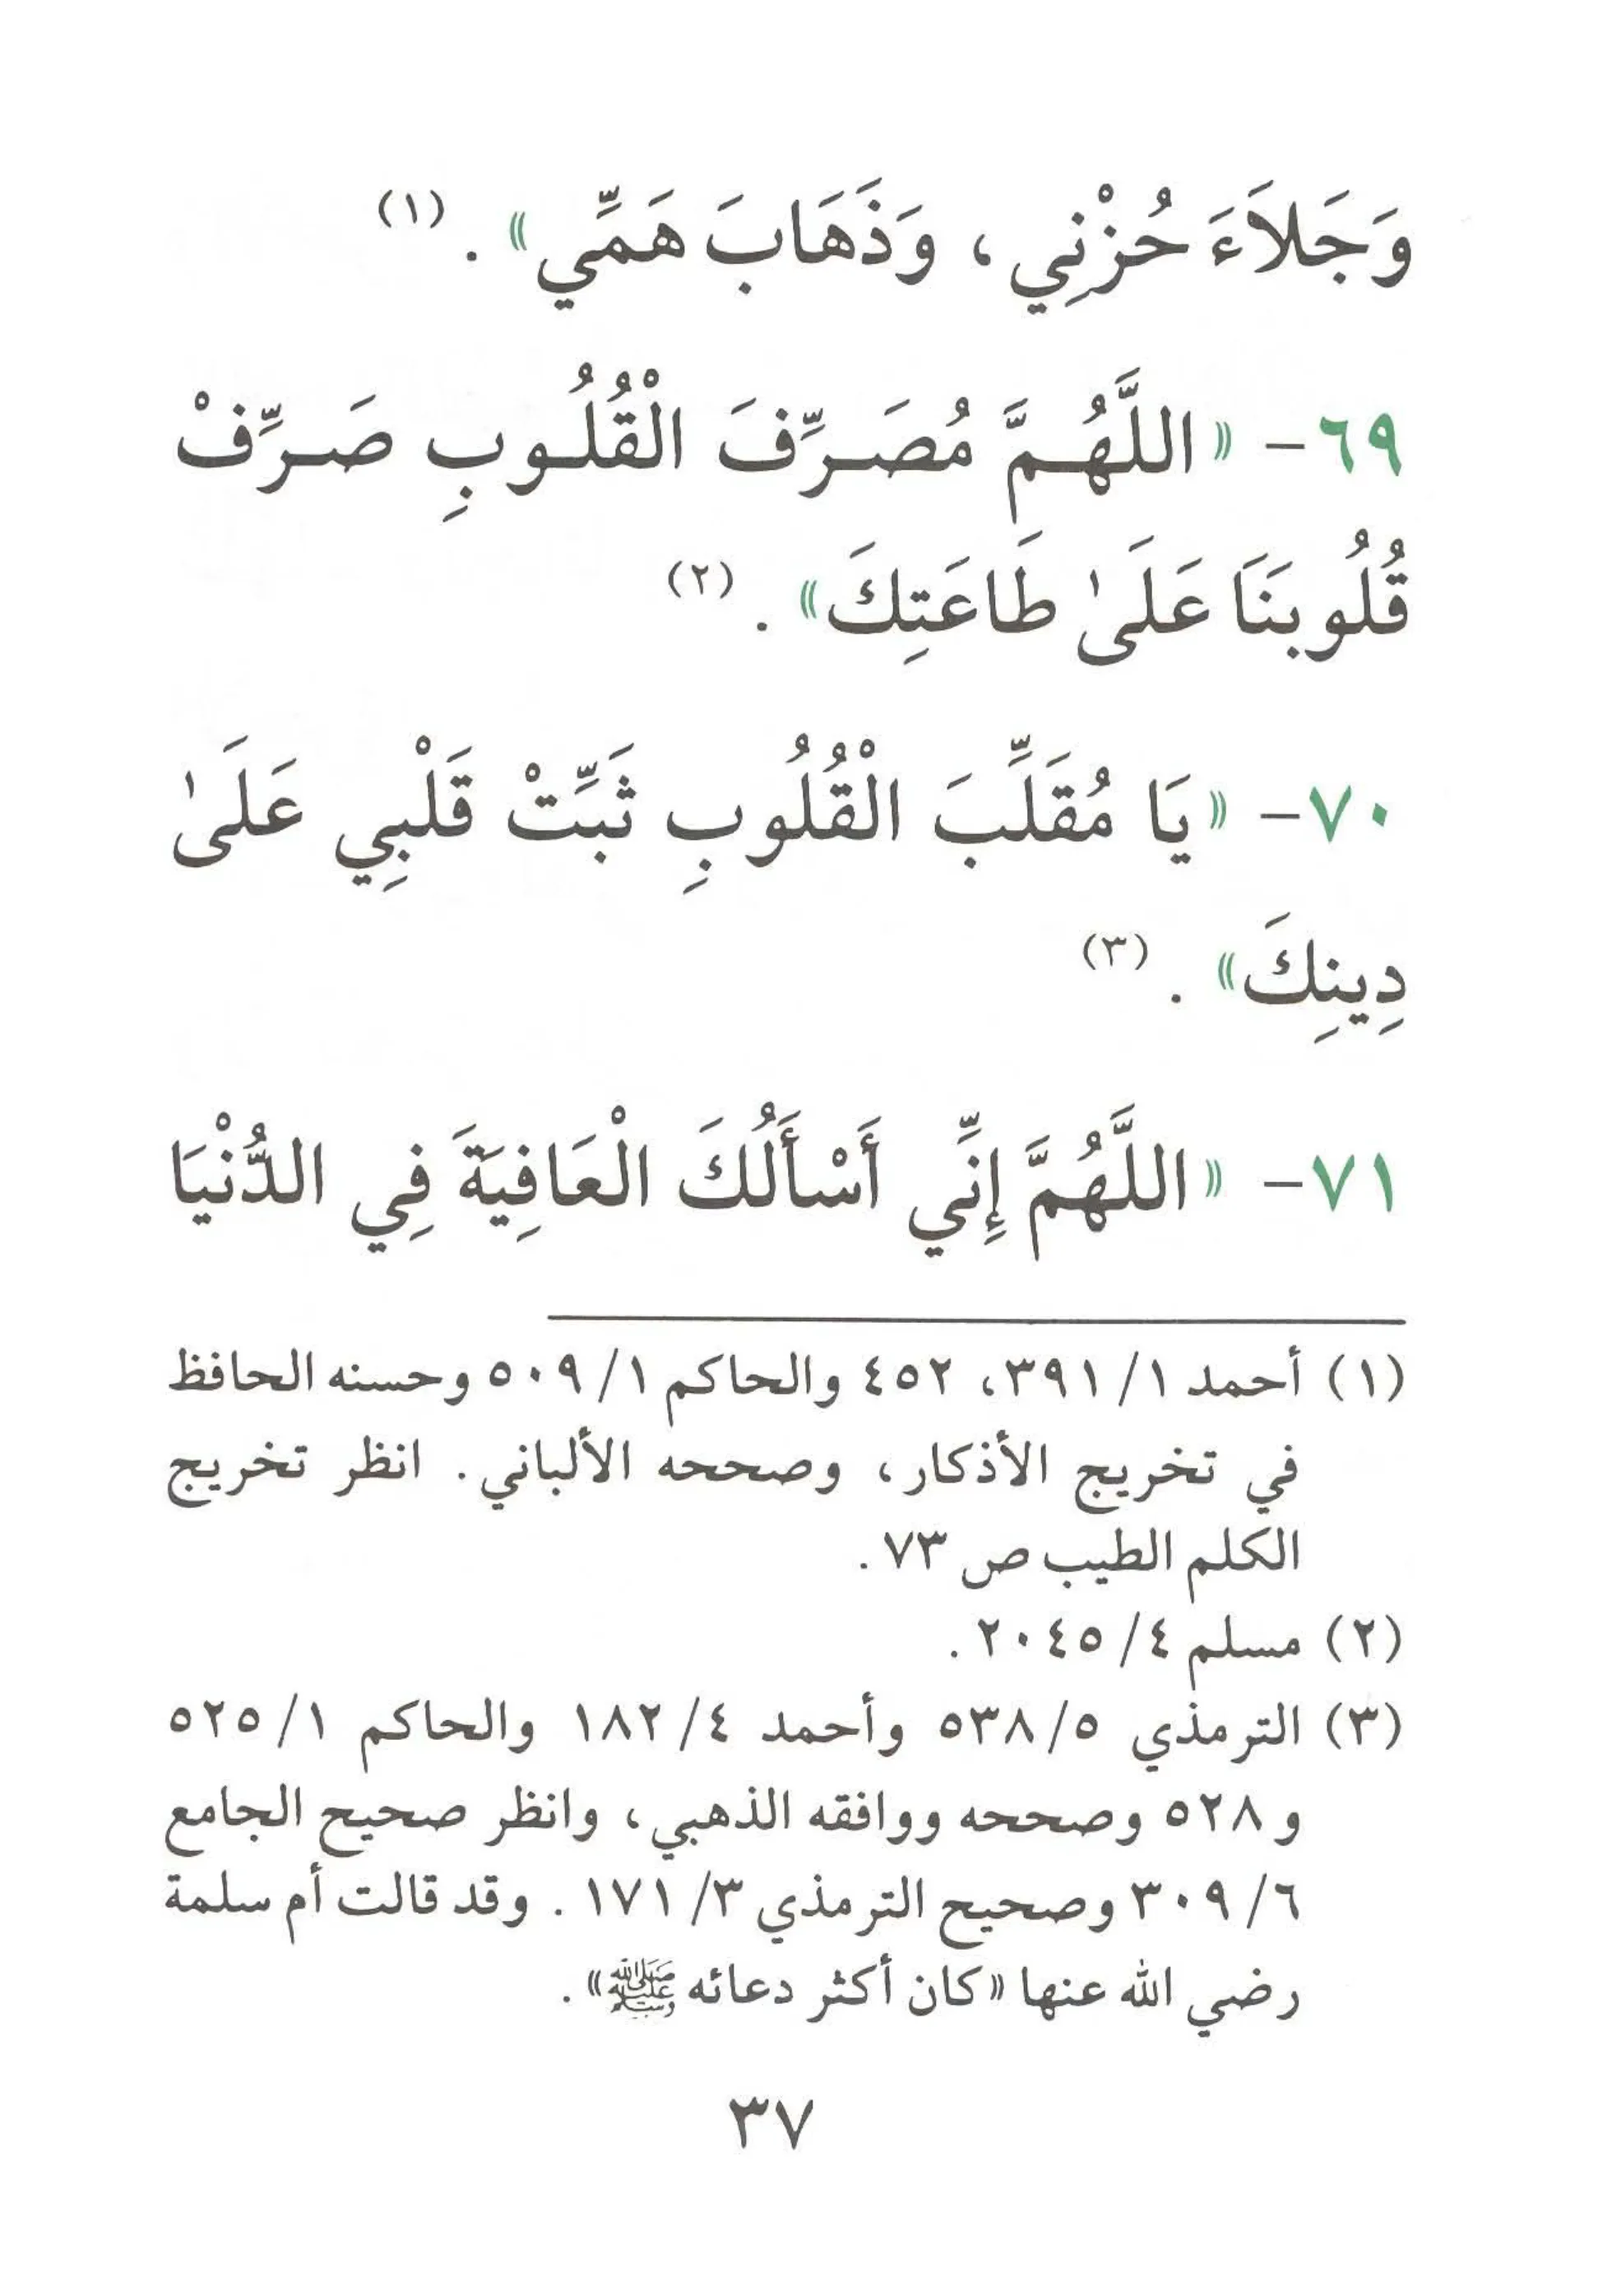 وَجَلاَءَ حُزْنِي ، وَذَهَابَ هَمِّي » . (١)
٦٩- « اللَّهُمَّ مُصَرِّفَ الْقُلُوبِ صَرِّفْ
قُلُوبَنَا عَلَىٰ طَاعَتِكَ » . (٢)
٧٠- « يَا مُقَلِّبَ الْقُلُوبِ ثَبِّتْ قَلْبِي عَلَىٰ
دِينِكَ » . (٣)
٧١- « اللَّهُمَّ إِنِّي أَسْأَلُكَ الْعَافِيَةَ فِي الدُّنْيَا
(١) أحمد ١/ ٣٩١، ٤٥٢ والحاكم ١/ ٥٠٩ وحسنه الحافظ
في تخريج الأذكار ، وصححه الألباني . انظر تخريج
الكلم الطيب ص ٧٣ .
(٢) مسلم ٤/ ٢٠٤٥ .
(٣) الترمذي ٥/ ٥٣٨ وأحمد ٤/ ١٨٢ والحاكم ١/ ٥٢٥
و ٥٢٨ وصححه ووافقه الذهبي ، وانظر صحيح الجامع
٦/ ٣٠٩ وصحيح الترمذي ٣/ ١٧١ . وقد قالت أم سلمة
رضي الله عنها « كان أكثر دعائه ﷺ » .
٣٧